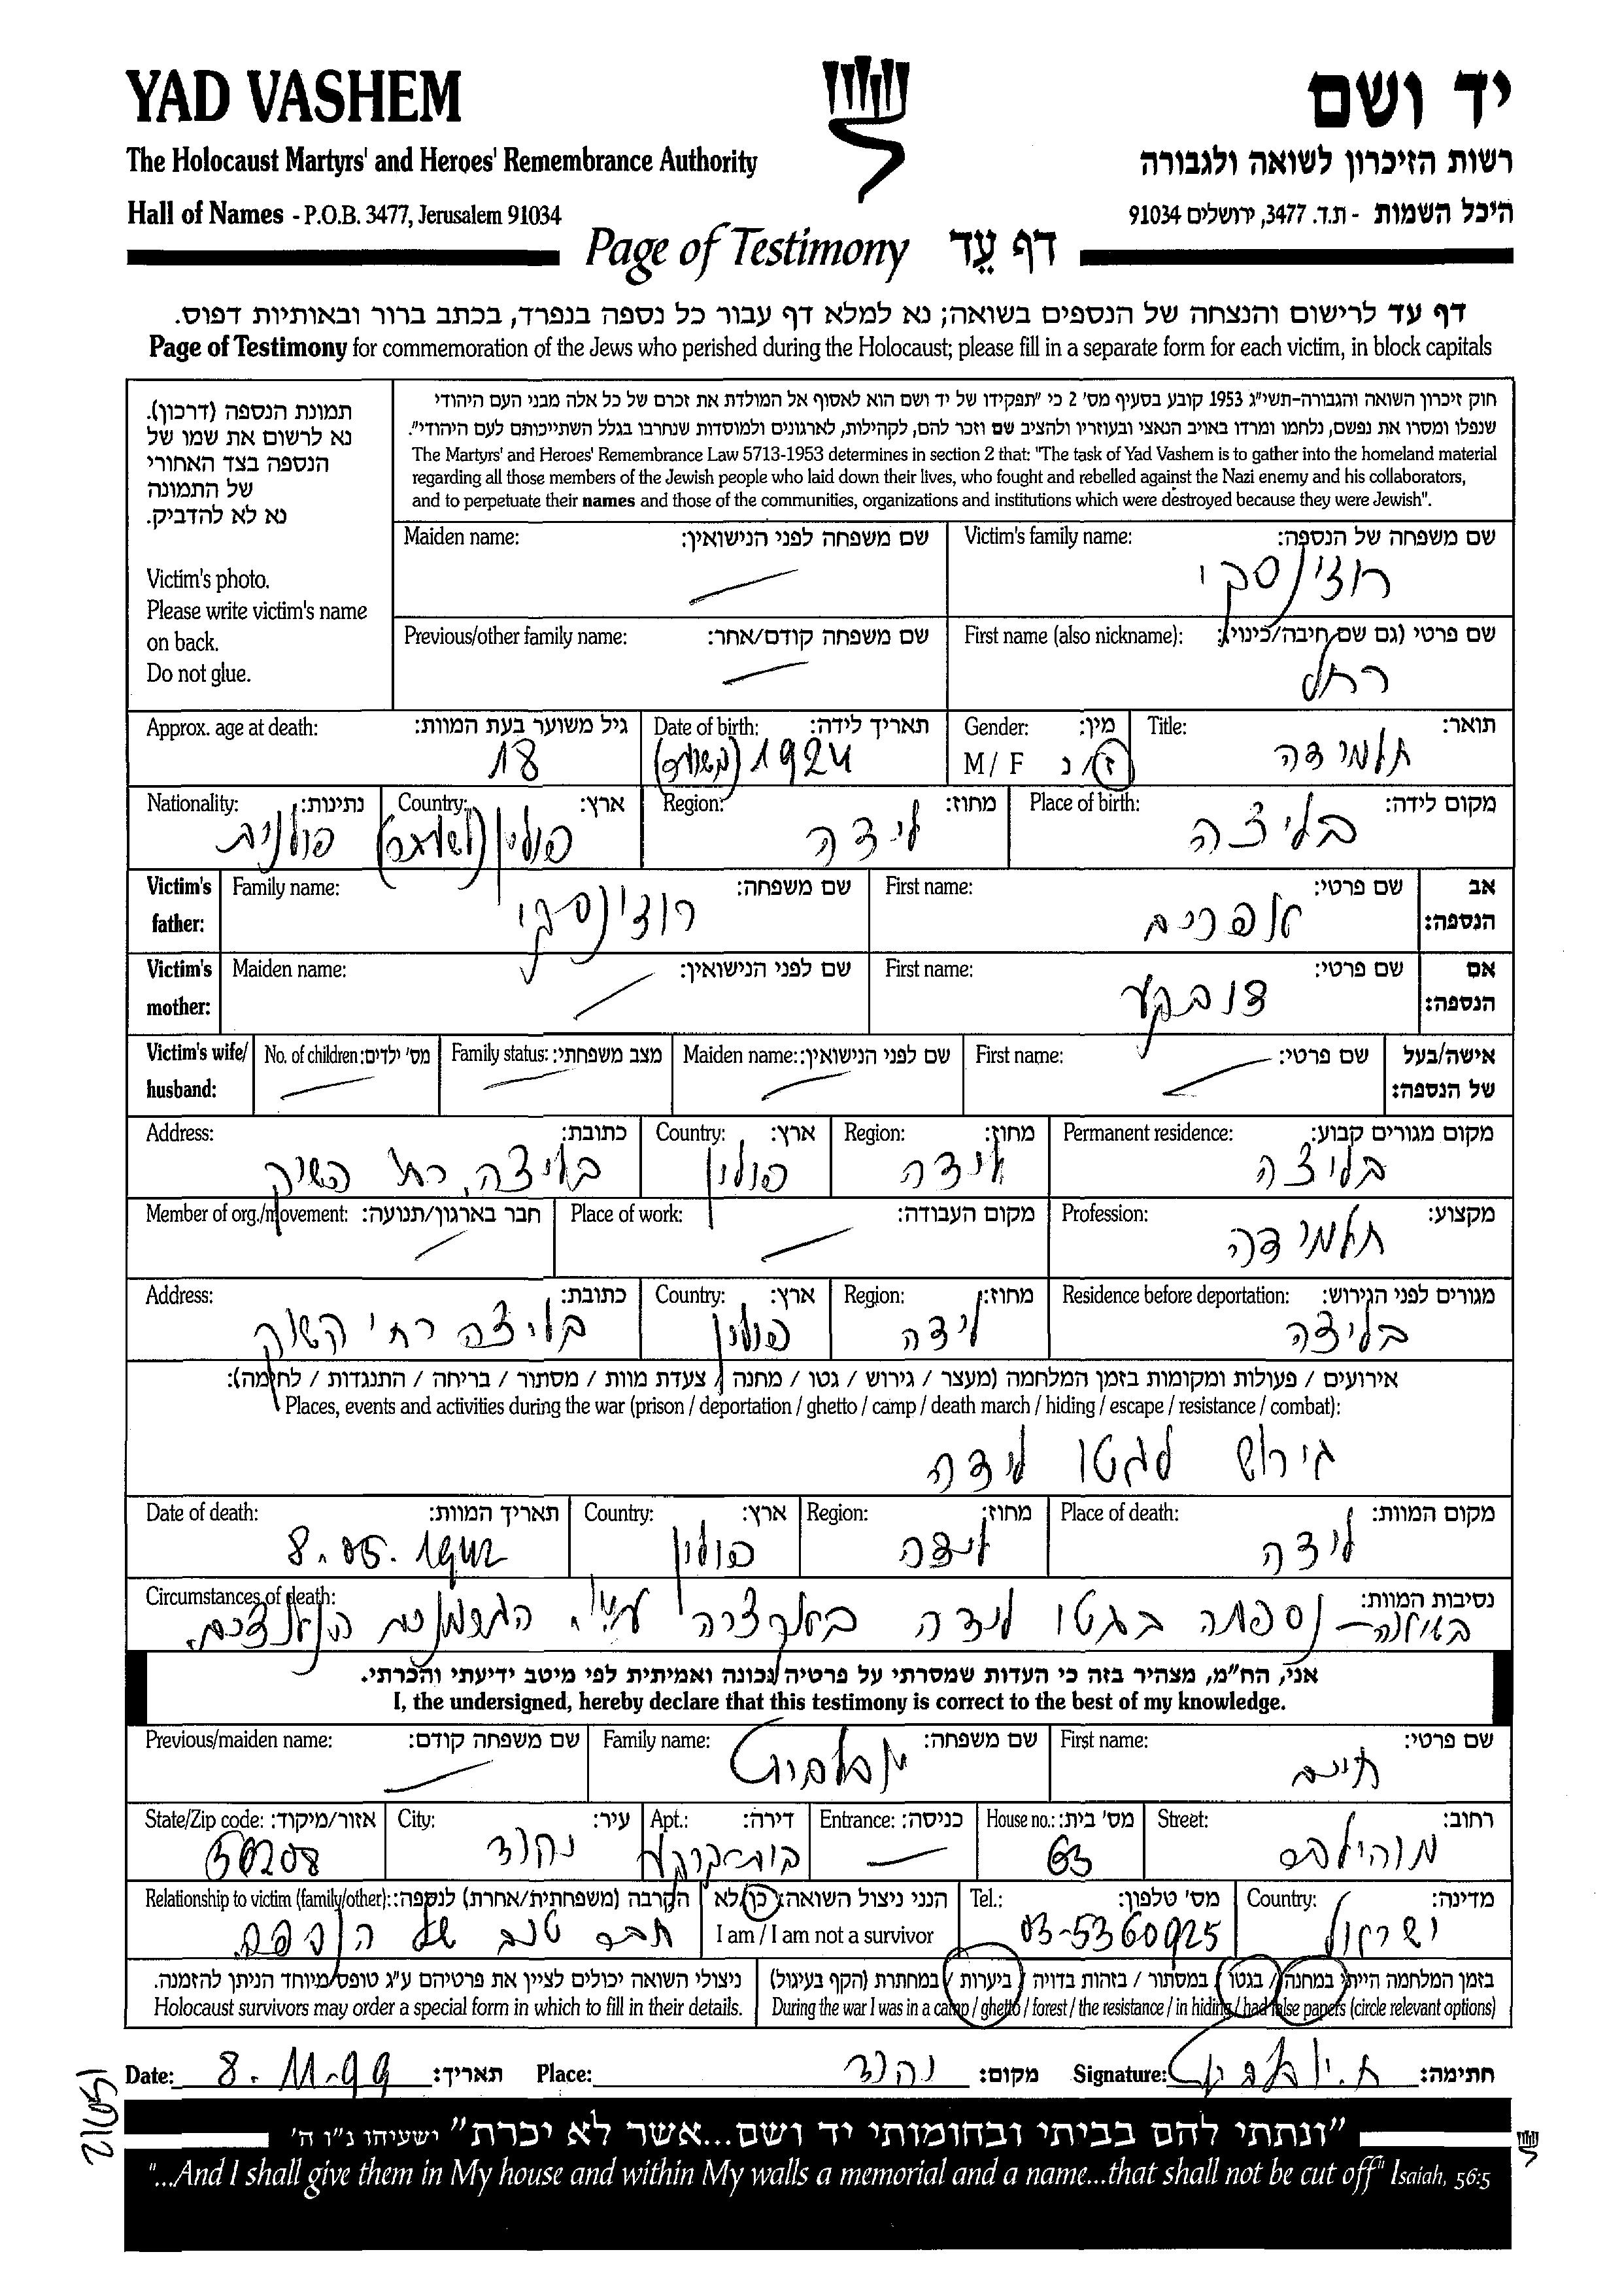 YAD VASHEM
יד ושם
The Holocaust Martyrs' and Heroes' Remembrance Authority
רשות הזיכרון לשואה ולגבורה
Hall of Names - P.O.B. 3477, Jerusalem 91034
היכל השמות - ת.ד. 3477, ירושלים 91034
Page of Testimony דף עֵד
דף עד לרישום והנצחה של הנספים בשואה; נא למלא דף עבור כל נספה בנפרד, בכתב ברור ובאותיות דפוס.
Page of Testimony for commemoration of the Jews who perished during the Holocaust; please fill in a separate form for each victim, in block capitals
תמונת הנספה (דרכון).
נא לרשום את שמו של
הנספה בצד האחורי
של התמונה
נא לא להדביק.
Victim's photo.
Please write victim's name
on back.
Do not glue.
חוק זיכרון השואה והגבורה-תשי"ג 1953 קובע בסעיף מס' 2 כי "תפקידו של יד ושם הוא לאסוף אל המולדת את זכרם של כל אלה מבני העם היהודי
שנפלו ומסרו את נפשם, נלחמו ומרדו באויב הנאצי ובעוזריו ולהציב שם וזכר להם, לקהילות, לארגונים ולמוסדות שנחרבו בגלל השתייכותם לעם היהודי".
The Martyrs' and Heroes' Remembrance Law 5713-1953 determines in section 2 that: "The task of Yad Vashem is to gather into the homeland material
regarding all those members of the Jewish people who laid down their lives, who fought and rebelled against the Nazi enemy and his collaborators,
and to perpetuate their names and those of the communities, organizations and institutions which were destroyed because they were Jewish".
Victim's family name: שם משפחה של הנספה:
רוז'ינסקי
Maiden name: שם משפחה לפני הנישואין:
First name (also nickname): שם פרטי (גם שם חיבה/כינוי):
רחל
Previous/other family name: שם משפחה קודם/אחר:
Title: תואר:
תלמידה
Gender: מין:
M / F ז / נ
Date of birth: תאריך לידה:
1924 (משוער)
Approx. age at death: גיל משוער בעת המוות:
18
Place of birth: מקום לידה:
בליצה
Region: מחוז:
לידה
Country: ארץ:
פולין
Nationality: נתינות:
פולנית
Victim's father: אב הנספה:
First name: שם פרטי:
אפרים
Family name: שם משפחה:
רוז'ינסקי
Victim's mother: אם הנספה:
First name: שם פרטי:
Maiden name: שם לפני הנישואין:
Victim's wife/ husband: אישה/בעל של הנספה:
First name: שם פרטי:
Maiden name: שם לפני הנישואין:
Family status: מצב משפחתי:
No. of children: מס' ילדים:
Permanent residence: מקום מגורים קבוע:
בליצה
Region: מחוז:
לידה
Country: ארץ:
פולין
Address: כתובת:
בליצה, רח' השוק
Profession: מקצוע:
תלמידה
Place of work: מקום העבודה:
Member of org./movement: חבר בארגון/תנועה:
Residence before deportation: מגורים לפני הגירוש:
בליצה
Region: מחוז:
לידה
Country: ארץ:
פולין
Address: כתובת:
בליצה רח' השוק
אירועים / פעולות ומקומות בזמן המלחמה (מעצר / גירוש / גטו / מחנה / צעדת מוות / מסתור / בריחה / התנגדות / לחימה):
Places, events and activities during the war (prison / deportation / ghetto / camp / death march / hiding / escape / resistance / combat):
גירוש לגטו לידה
Place of death: מקום המוות:
לידה
Region: מחוז:
לידה
Country: ארץ:
פולין
Date of death: תאריך המוות:
8.05.1942
Circumstances of death: נסיבות המוות:
נספתה בגטו לידה ע"י הגרמנים הנאצים.
אני, הח"מ, מצהיר בזה כי העדות שמסרתי על פרטיה נכונה ואמיתית לפי מיטב ידיעתי והכרתי.
I, the undersigned, hereby declare that this testimony is correct to the best of my knowledge.
First name: שם פרטי:
חיים
Family name: שם משפחה:
Previous/maiden name: שם משפחה קודם:
Street: רחוב:
מוהיליבר
House no.: מס' בית:
63
Entrance: כניסה:
Apt.: דירה:
City: עיר:
יהוד
State/Zip code: אזור/מיקוד:
56208
Country: מדינה:
ישראל
Tel.: מס' טלפון:
03-5360925
הנני ניצול השואה: כן/לא
I am / I am not a survivor
Relationship to victim (family/other): הקרבה (משפחתית/אחרת) לנספה:
חבר טוב של הנספה
בזמן המלחמה הייתי במחנה / בגטו / במסתור / בזהות בדויה / ביערות / במחתרת (הקף בעיגול)
During the war I was in a camp / ghetto / forest / the resistance / in hiding / had false papers (circle relevant options)
ניצולי השואה יכולים לציין את פרטיהם ע"ג טופס מיוחד הניתן להזמנה.
Holocaust survivors may order a special form in which to fill in their details.
Date: 8.11.99 תאריך:
Place: יהוד מקום:
Signature: חתימה:
"ונתתי להם בביתי ובחומותי יד ושם...אשר לא יכרת" ישעיהו נ"ו ה'
"...And I shall give them in My house and within My walls a memorial and a name...that shall not be cut off" Isaiah, 56:5